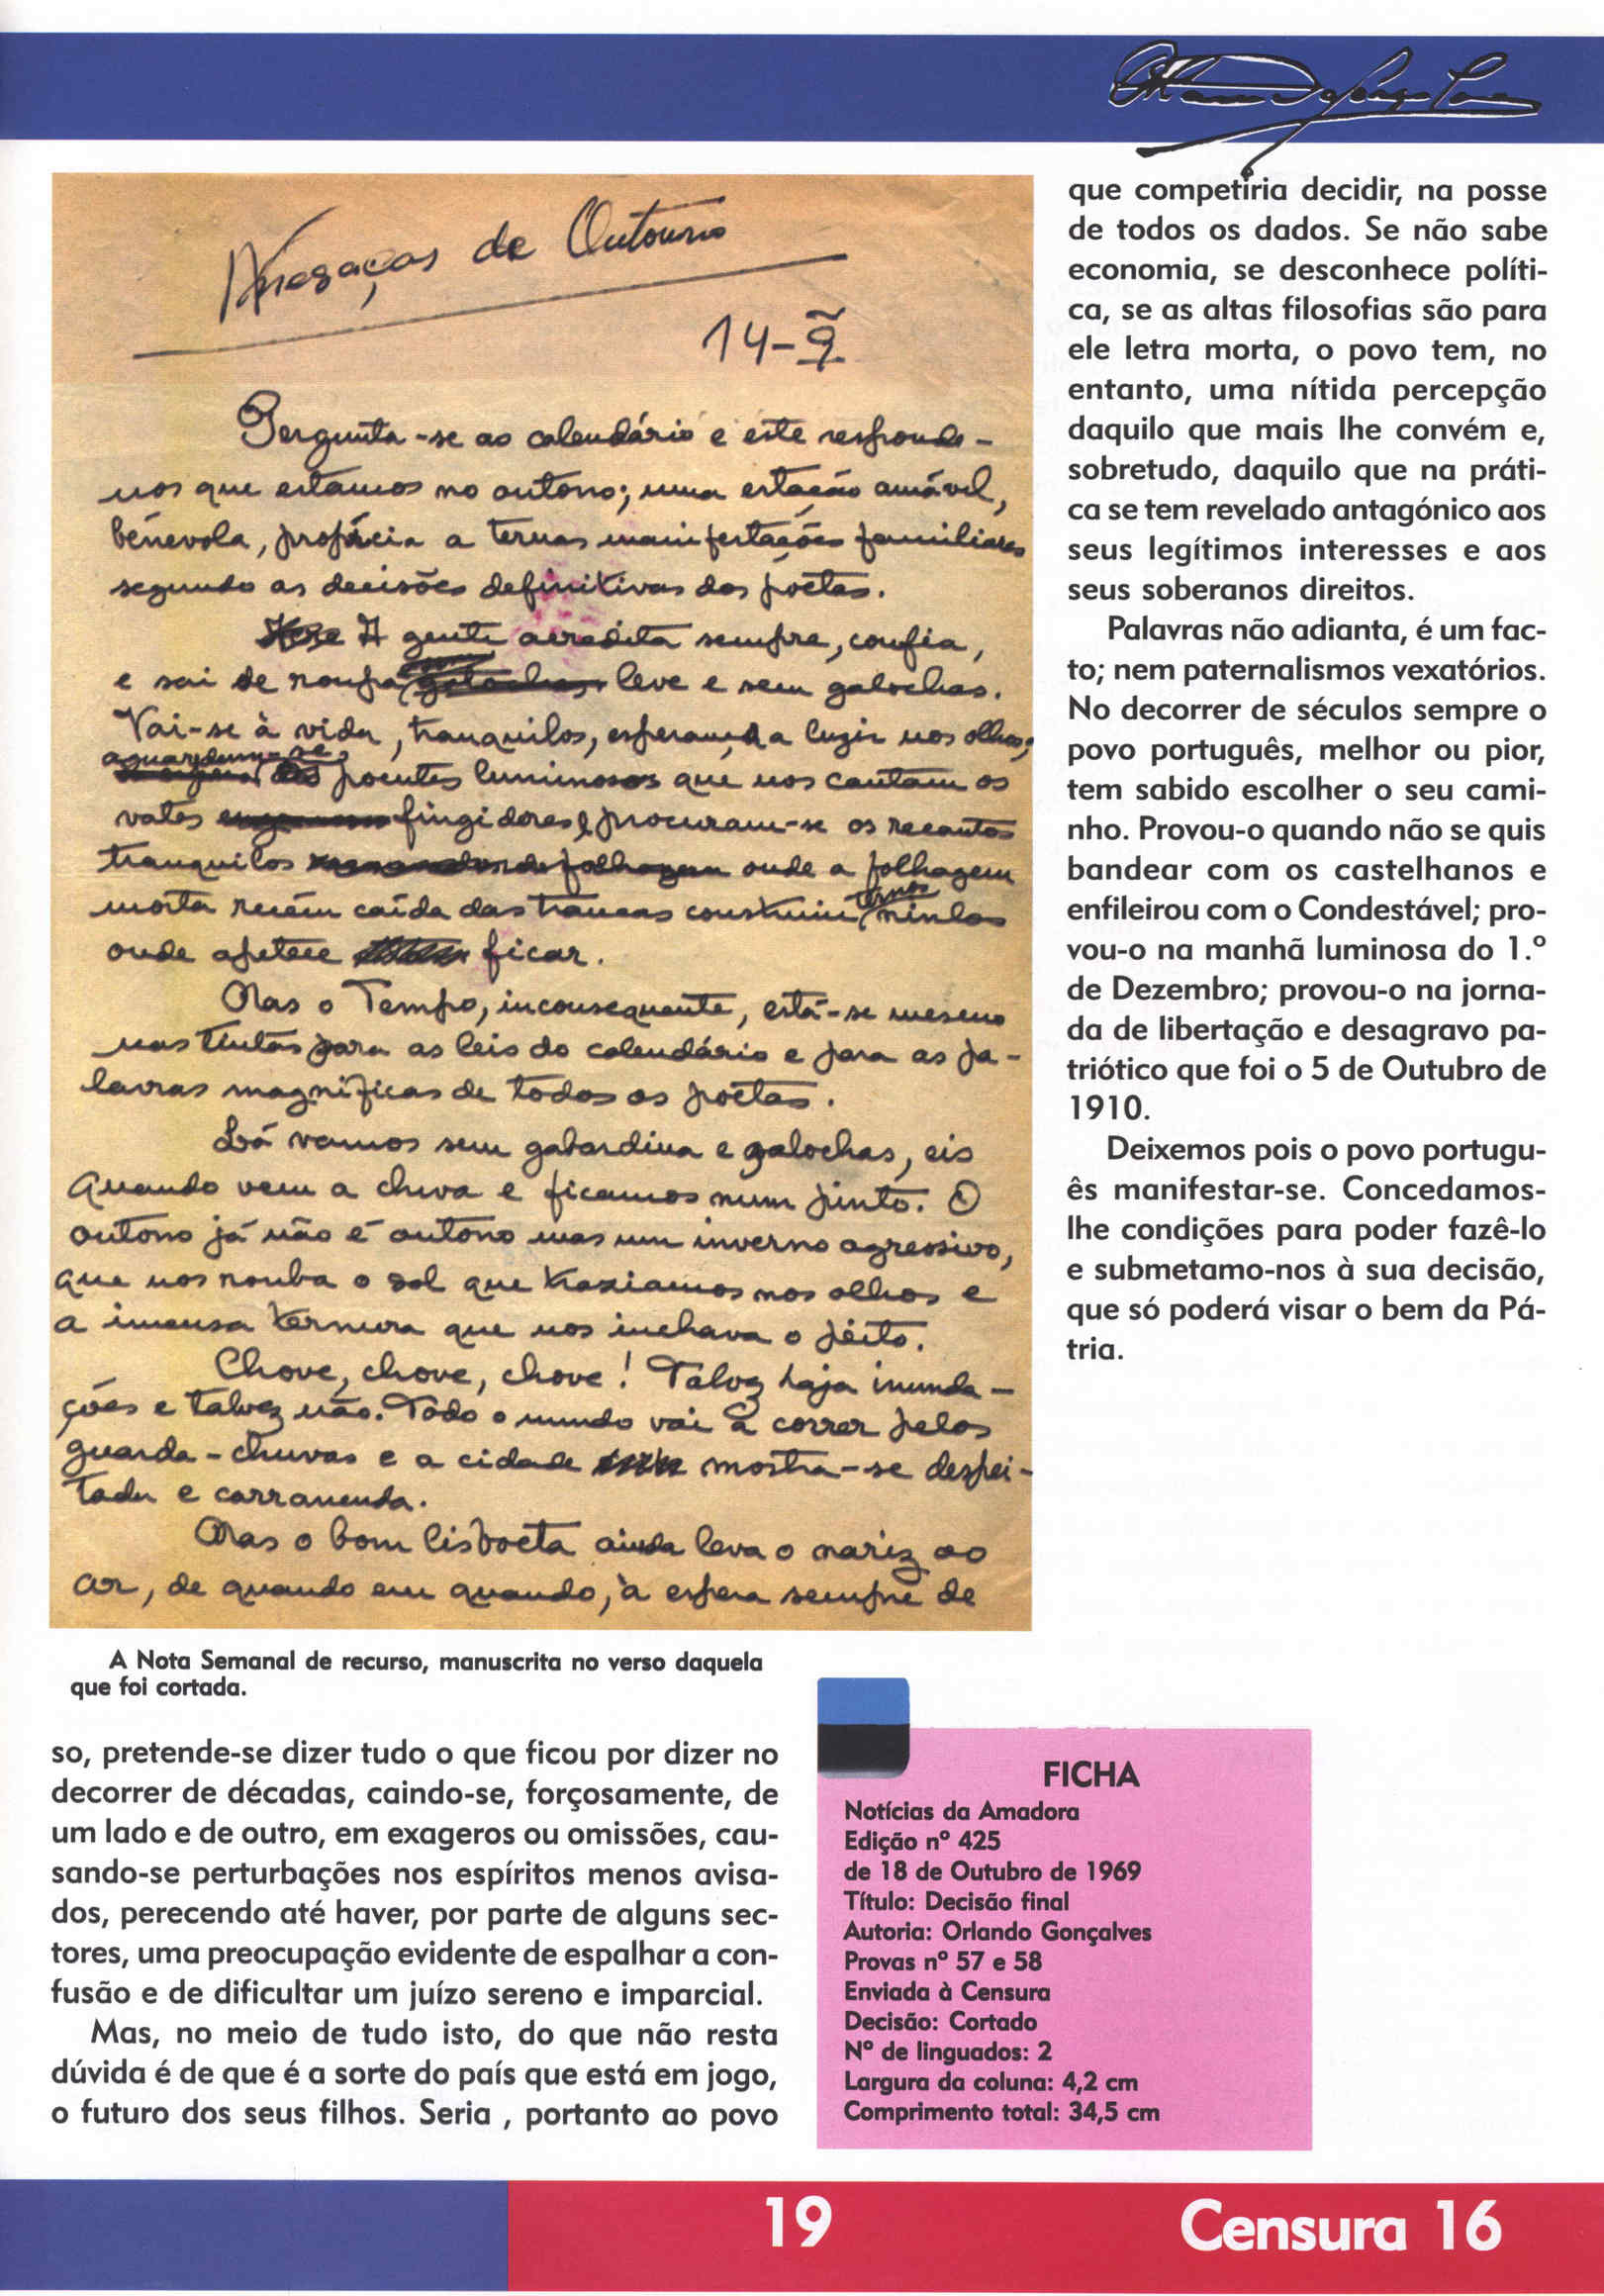 Negaças de Outouno
14-9
Pergunta-se ao calendário e este responde-
nos que estamos no outono; uma estação amável,
bénevola, propícia a ternas manifestações familiares
segundo as decisões definitivas dos poetas.
A gente acredita sempre, confia,
e sai de roupa leve e sem galochas.
Vai-se à vida, tranquilos, esperança a luzir nos olhos;
aguardam-se
poentes luminosos que nos cantam os
vates fingidores e procuram-se os recantos
tranquilos onde a folhagem
ternos
morta recém caída das trancas construiu ninhos
onde apetece ficar.
Mas o Tempo, inconsequente, está-se mesmo
nas tintas para as leis do calendário e para as pa-
lavras magníficas de todos os poetas.
Lá vamos sem gabardina e galochas, eis
quando vem a chuva e ficamos num pinto. O
outono já não é outono mas um inverno agressivo,
que nos rouba o sol que traziamos nos olhos e
a imensa ternura que nos inchava o peito.
Chove, chove, chove! Talvez haja inunda-
ções e talvez não. Todo o mundo vai a correr pelos
guarda-chuvas e a cidade mostra-se despei-
tada e carrancuda.
Mas o bom lisboeta ainda leva o nariz ao
ar, de quando em quando, à espera sempre de
A Nota Semanal de recurso, manuscrita no verso daquela
que foi cortada.
so, pretende-se dizer tudo o que ficou por dizer no
decorrer de décadas, caindo-se, forçosamente, de
um lado e de outro, em exageros ou omissões, cau-
sando-se perturbações nos espíritos menos avisa-
dos, perecendo até haver, por parte de alguns sec-
tores, uma preocupação evidente de espalhar a con-
fusão e de dificultar um juízo sereno e imparcial.
Mas, no meio de tudo isto, do que não resta
dúvida é de que é a sorte do país que está em jogo,
o futuro dos seus filhos. Seria , portanto ao povo
que competiria decidir, na posse
de todos os dados. Se não sabe
economia, se desconhece políti-
ca, se as altas filosofias são para
ele letra morta, o povo tem, no
entanto, uma nítida percepção
daquilo que mais lhe convém e,
sobretudo, daquilo que na práti-
ca se tem revelado antagónico aos
seus legítimos interesses e aos
seus soberanos direitos.
Palavras não adianta, é um fac-
to; nem paternalismos vexatórios.
No decorrer de séculos sempre o
povo português, melhor ou pior,
tem sabido escolher o seu cami-
nho. Provou-o quando não se quis
bandear com os castelhanos e
enfileirou com o Condestável; pro-
vou-o na manhã luminosa do 1.º
de Dezembro; provou-o na jorna-
da de libertação e desagravo pa-
triótico que foi o 5 de Outubro de
1910.
Deixemos pois o povo portugu-
ês manifestar-se. Concedamos-
lhe condições para poder fazê-lo
e submetamo-nos à sua decisão,
que só poderá visar o bem da Pá-
tria.
FICHA
Notícias da Amadora
Edição nº 425
de 18 de Outubro de 1969
Título: Decisão final
Autoria: Orlando Gonçalves
Provas nº 57 e 58
Enviada à Censura
Decisão: Cortado
Nº de linguados: 2
Largura da coluna: 4,2 cm
Comprimento total: 34,5 cm
19
Censura 16